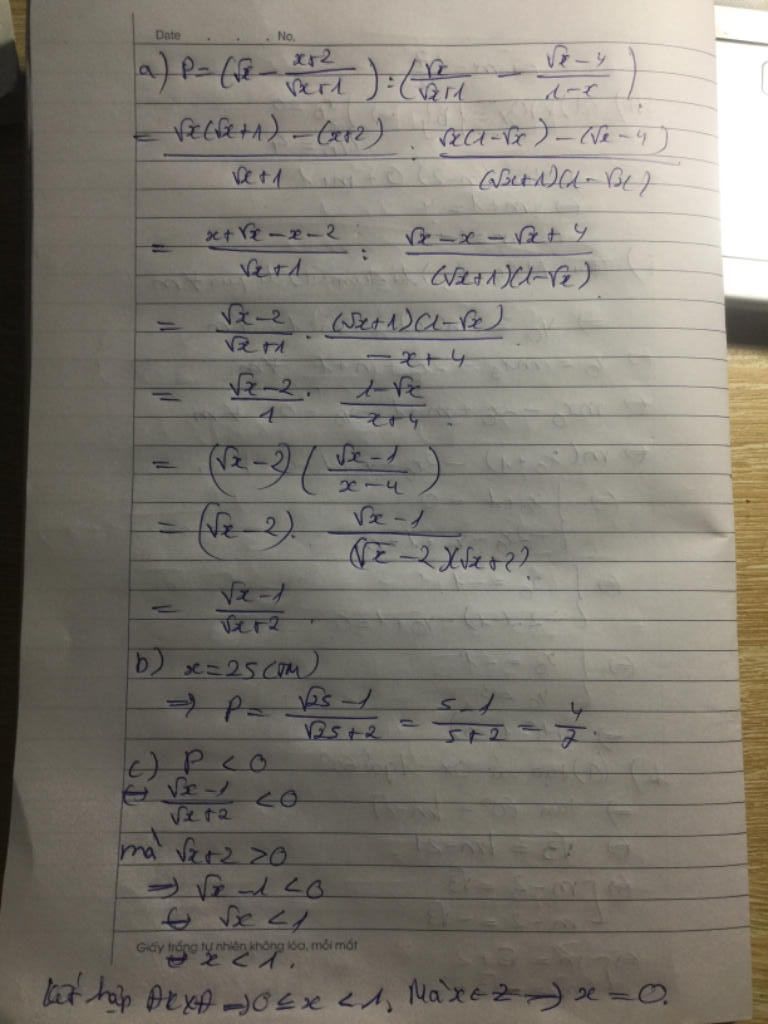 Date . . . No.
a) P = (√x - \frac{x+2}{√x+1}) : (\frac{√x}{√x+1} - \frac{√x-4}{1-x})
= \frac{√x(√x+1) - (x+2)}{√x+1} : \frac{√x(1-√x) - (√x-4)}{(√x+1)(1-√x)}
= \frac{x+√x-x-2}{√x+1} : \frac{√x-x-√x+4}{(√x+1)(1-√x)}
= \frac{√x-2}{√x+1} . \frac{(√x+1)(1-√x)}{-x+4}
= \frac{√x-2}{1} . \frac{1-√x}{-x+4}.
= (√x-2) (\frac{√x-1}{x-4})
= (√x-2). \frac{√x-1}{(√x-2)(√x+2)}
= \frac{√x-1}{√x+2}.
b) x=25(TM)
⇒ P = \frac{√25-1}{√25+2} = \frac{5-1}{5+2} = \frac{4}{7}.
c) P < 0
⇔ \frac{√x-1}{√x+2} < 0
mà √x+2 > 0
⇒ √x-1 < 0
⇔ √x < 1
Giấy trắng tự nhiên không lóa, mỏi mắt
⇔ x < 1.
Kết hợp ĐKXĐ ⇒ 0 ≤ x < 1, Mà x ∈ Z ⇒ x = 0.